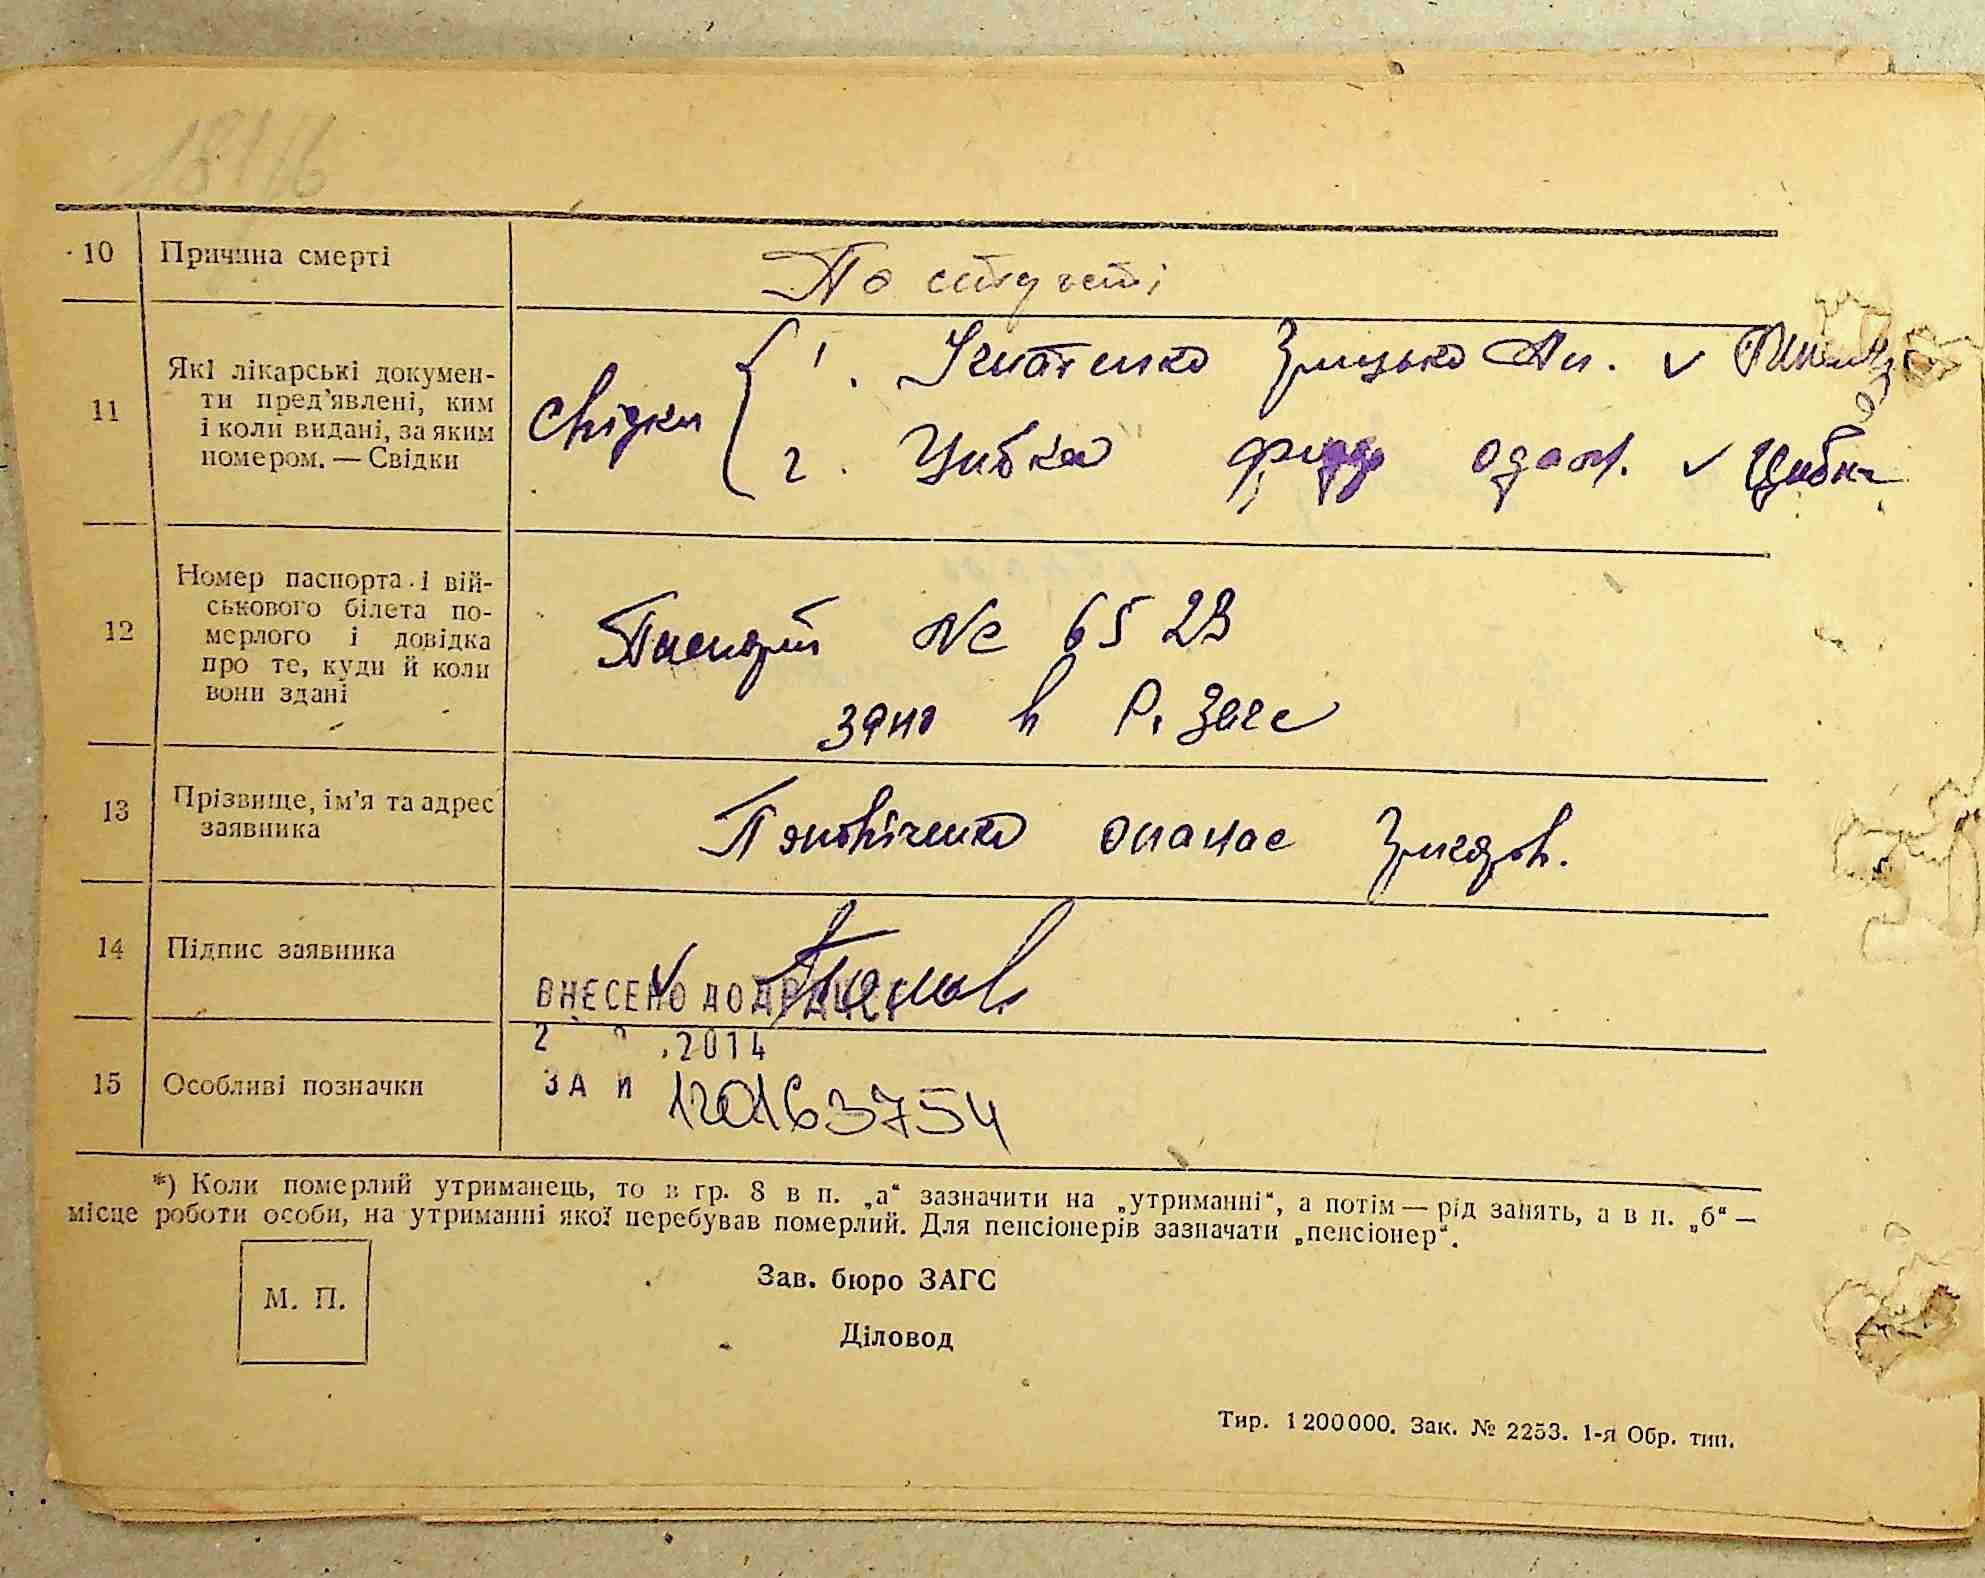 10 Причина смерті
По старості
11 Які лікарські докумен-
ти пред'явлені, ким
і коли видані, за яким
номером. — Свідки
свідки
1. Ігнатенко
2. Цибка
Цибка
12 Номер паспорта і вій-
ськового білета по-
мерлого і довідка
про те, куди й коли
вони здані
Паспорт № 6523
здано в Р. Загс
13 Прізвище, ім'я та адрес
заявника
опанас
14 Підпис заявника
ВНЕСЕНО ДО
2 .2014
15 Особливі позначки
ЗА И 120163754
*) Коли померлий утриманець, то в гр. 8 в п. „а“ зазначити на „утриманні“, а потім — рід занять, а в п. „б“ —
місце роботи особи, на утриманні якої перебував померлий. Для пенсіонерів зазначати „пенсіонер“.
М. П.
Зав. бюро ЗАГС
Діловод
Тир. 1 200 000. Зак. № 2253. 1-я Обр. тип.